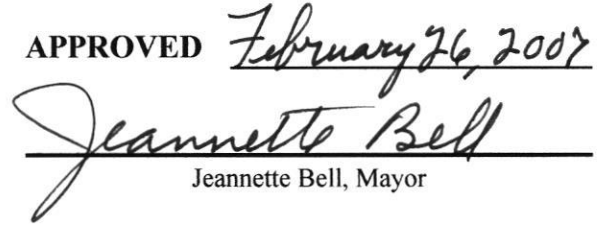 APPROVED February 26, 2007
Jeannette Bell
Jeannette Bell, Mayor